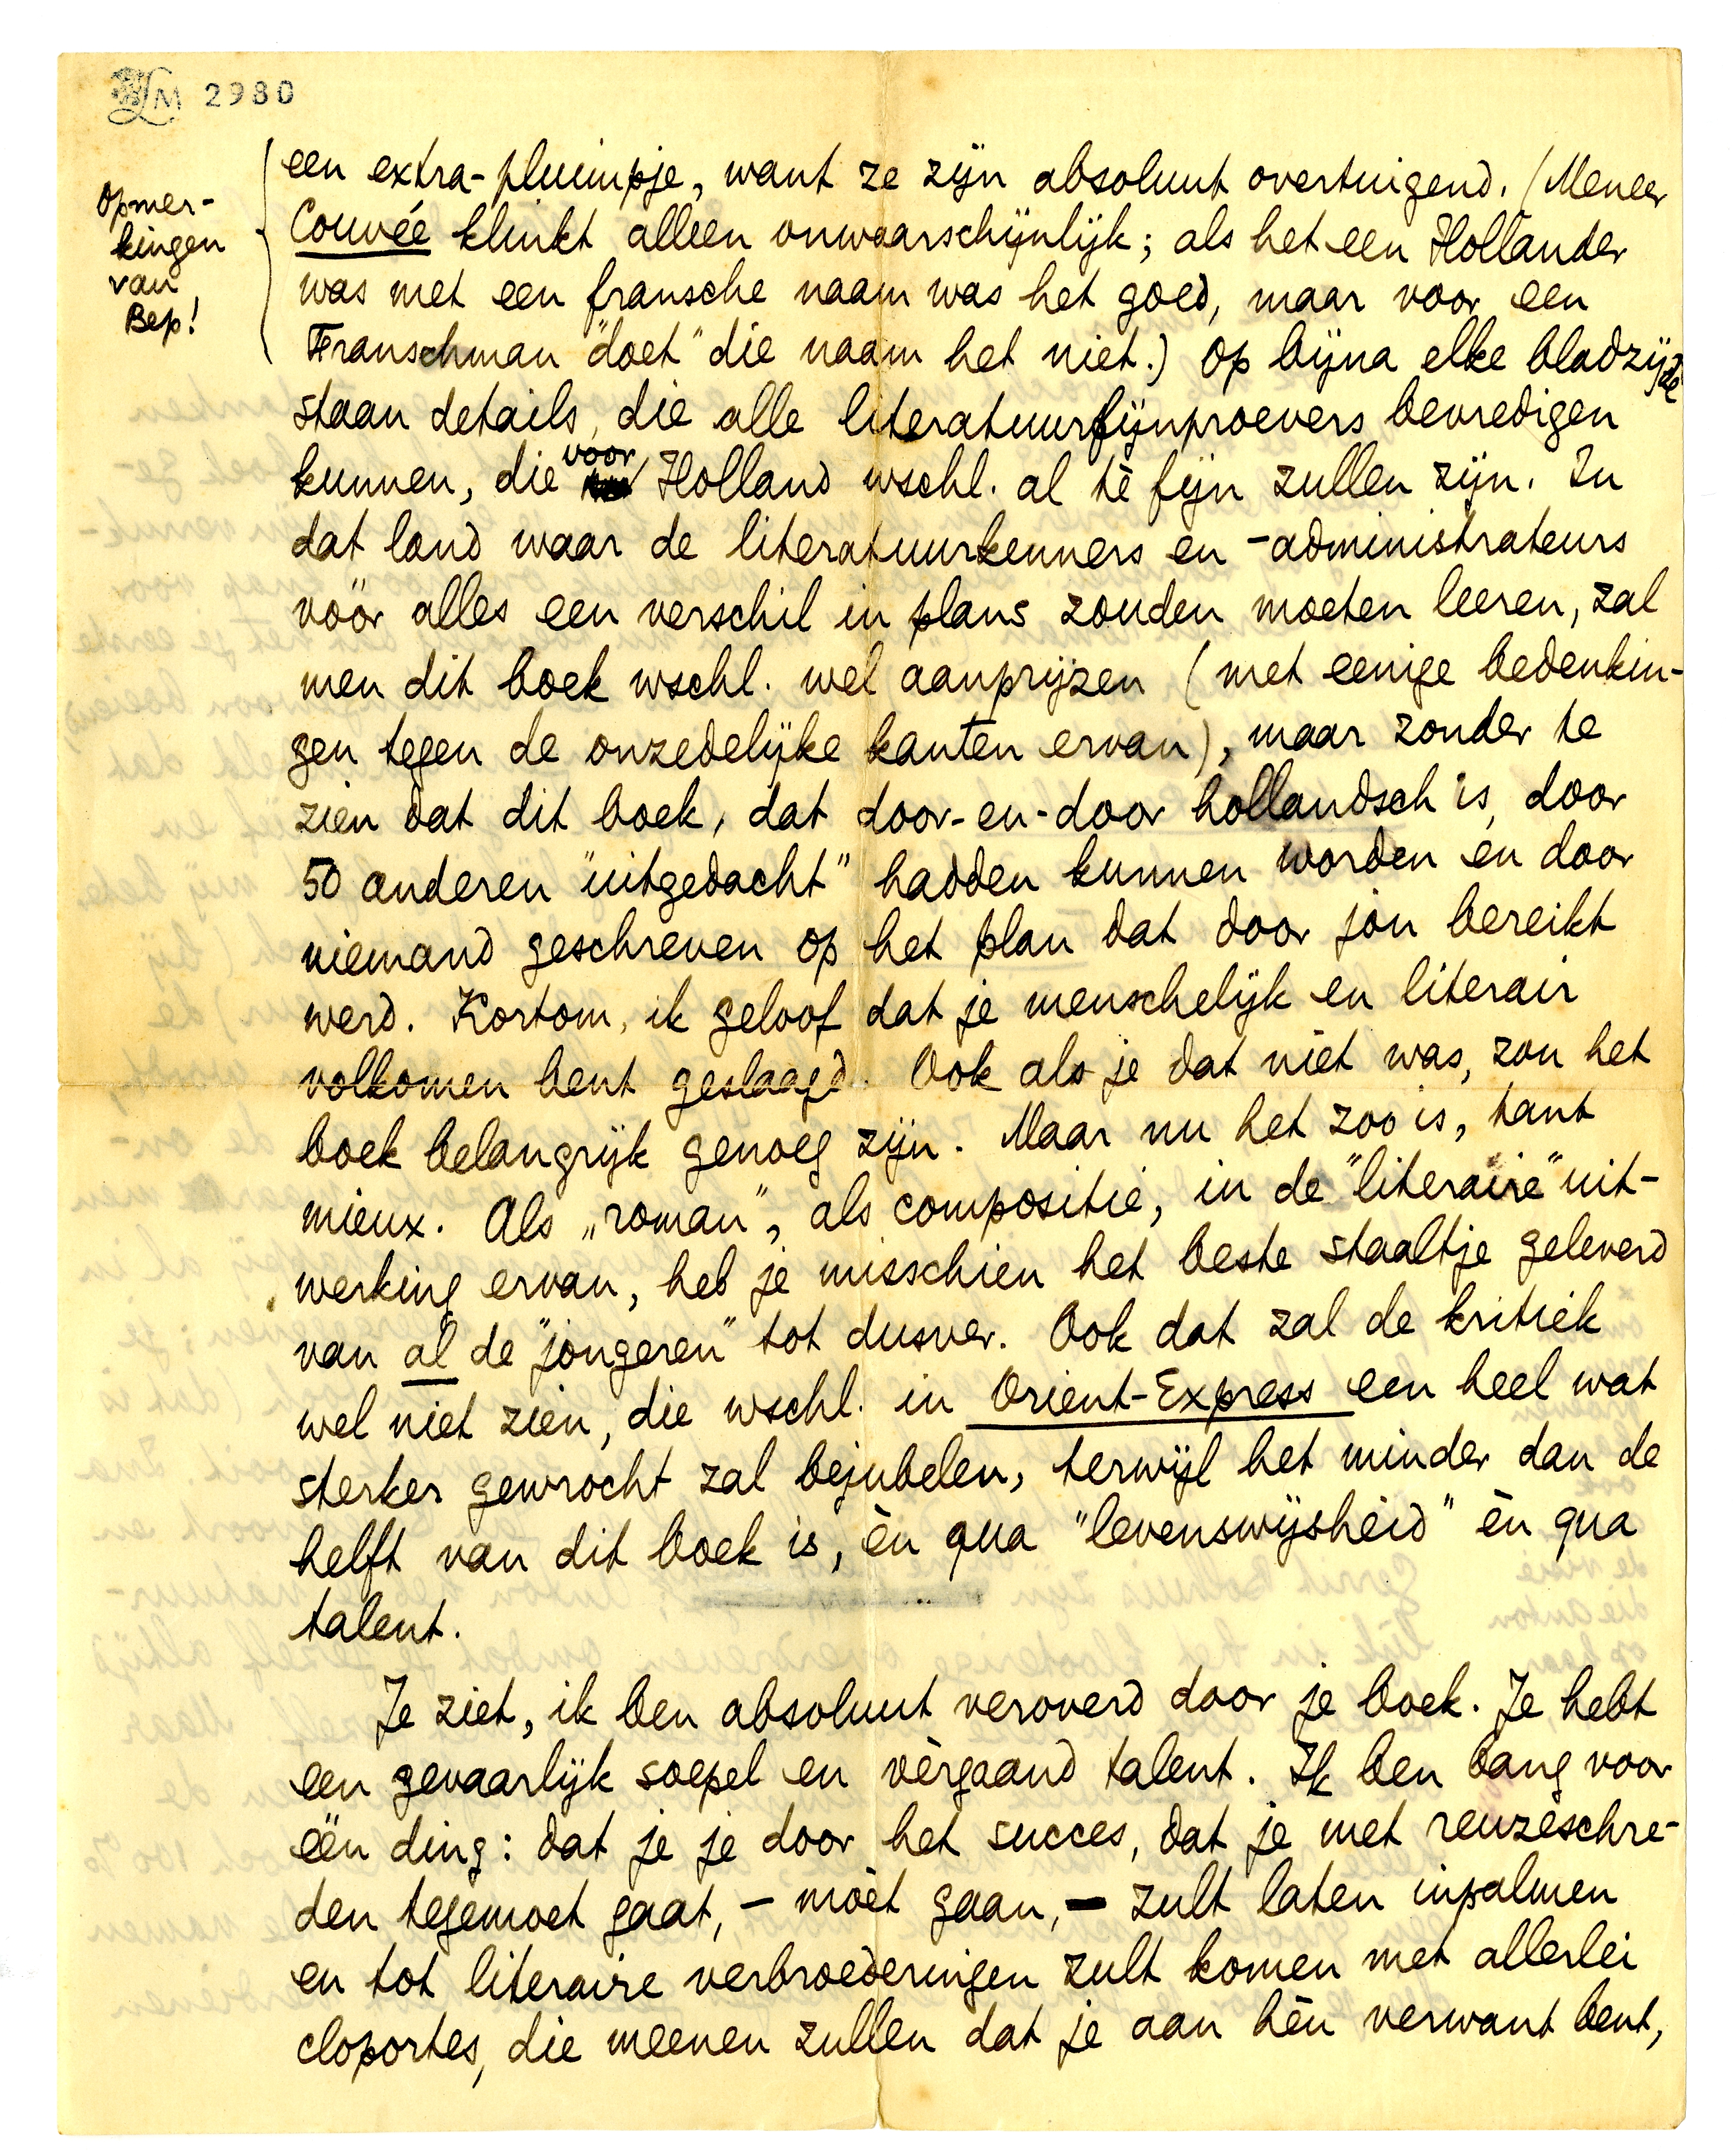 LM 2980
Opmer-
kingen
van
Bep!
een extra-pluimpje, want ze zijn absoluut overtuigend. (Meneer
Couvée klinkt alleen onwaarschijnlijk; als het een Hollander
was met een fransche naam was het goed, maar voor een
Franschman "doet" die naam het niet.) Op bijna elke bladzijde
staan details, die alle literatuurfijnproevers bevredigen
kunnen, die voor Holland wschl. al té fijn zullen zijn. In
dat land waar de literatuurkenners en -administrateurs
vóór alles een verschil in plans zouden moeten leeren, zal
men dit boek wschl. wel aanprijzen (met eenige bedenkin-
gen tegen de onzedelijke kanten ervan), maar zonder te
zien dat dit boek, dat door-en-door hollandsch is, door
50 anderen "uitgedacht" hadden kunnen worden en door
niemand geschreven op het plan dat door jóu bereikt
werd. Kortom, ik geloof dat je menschelijk en literair
volkomen bent geslaagd. Ook als je dat niet was, zou het
boek belangrijk genoeg zijn. Maar nu het zoo is, tant
mieux. Als „roman", als compositie, in de "literaire" uit-
werking ervan, heb je misschien het beste staaltje geleverd
van al de "jongeren" tot dusver. Ook dat zal de kritiek
wel niet zien, die wschl. in Orient-Express een heel wat
sterker gewrocht zal bejubelen, terwijl het minder dan de
helft van dit boek is, èn qua "levenswijsheid" èn qua
talent.
Je ziet, ik ben absoluut veroverd door je boek. Je hebt
een gevaarlijk soepel en vèrgaand talent. Ik ben bang voor
één ding: dat je je door het succes, dat je met reuzeschre-
den tegemoet gaat, - moèt gaan, - zult laten inpalmen
en tot literaire verbroederingen zult komen met allerlei
cloportes, die meenen zullen dat je aan hèn verwant bent,